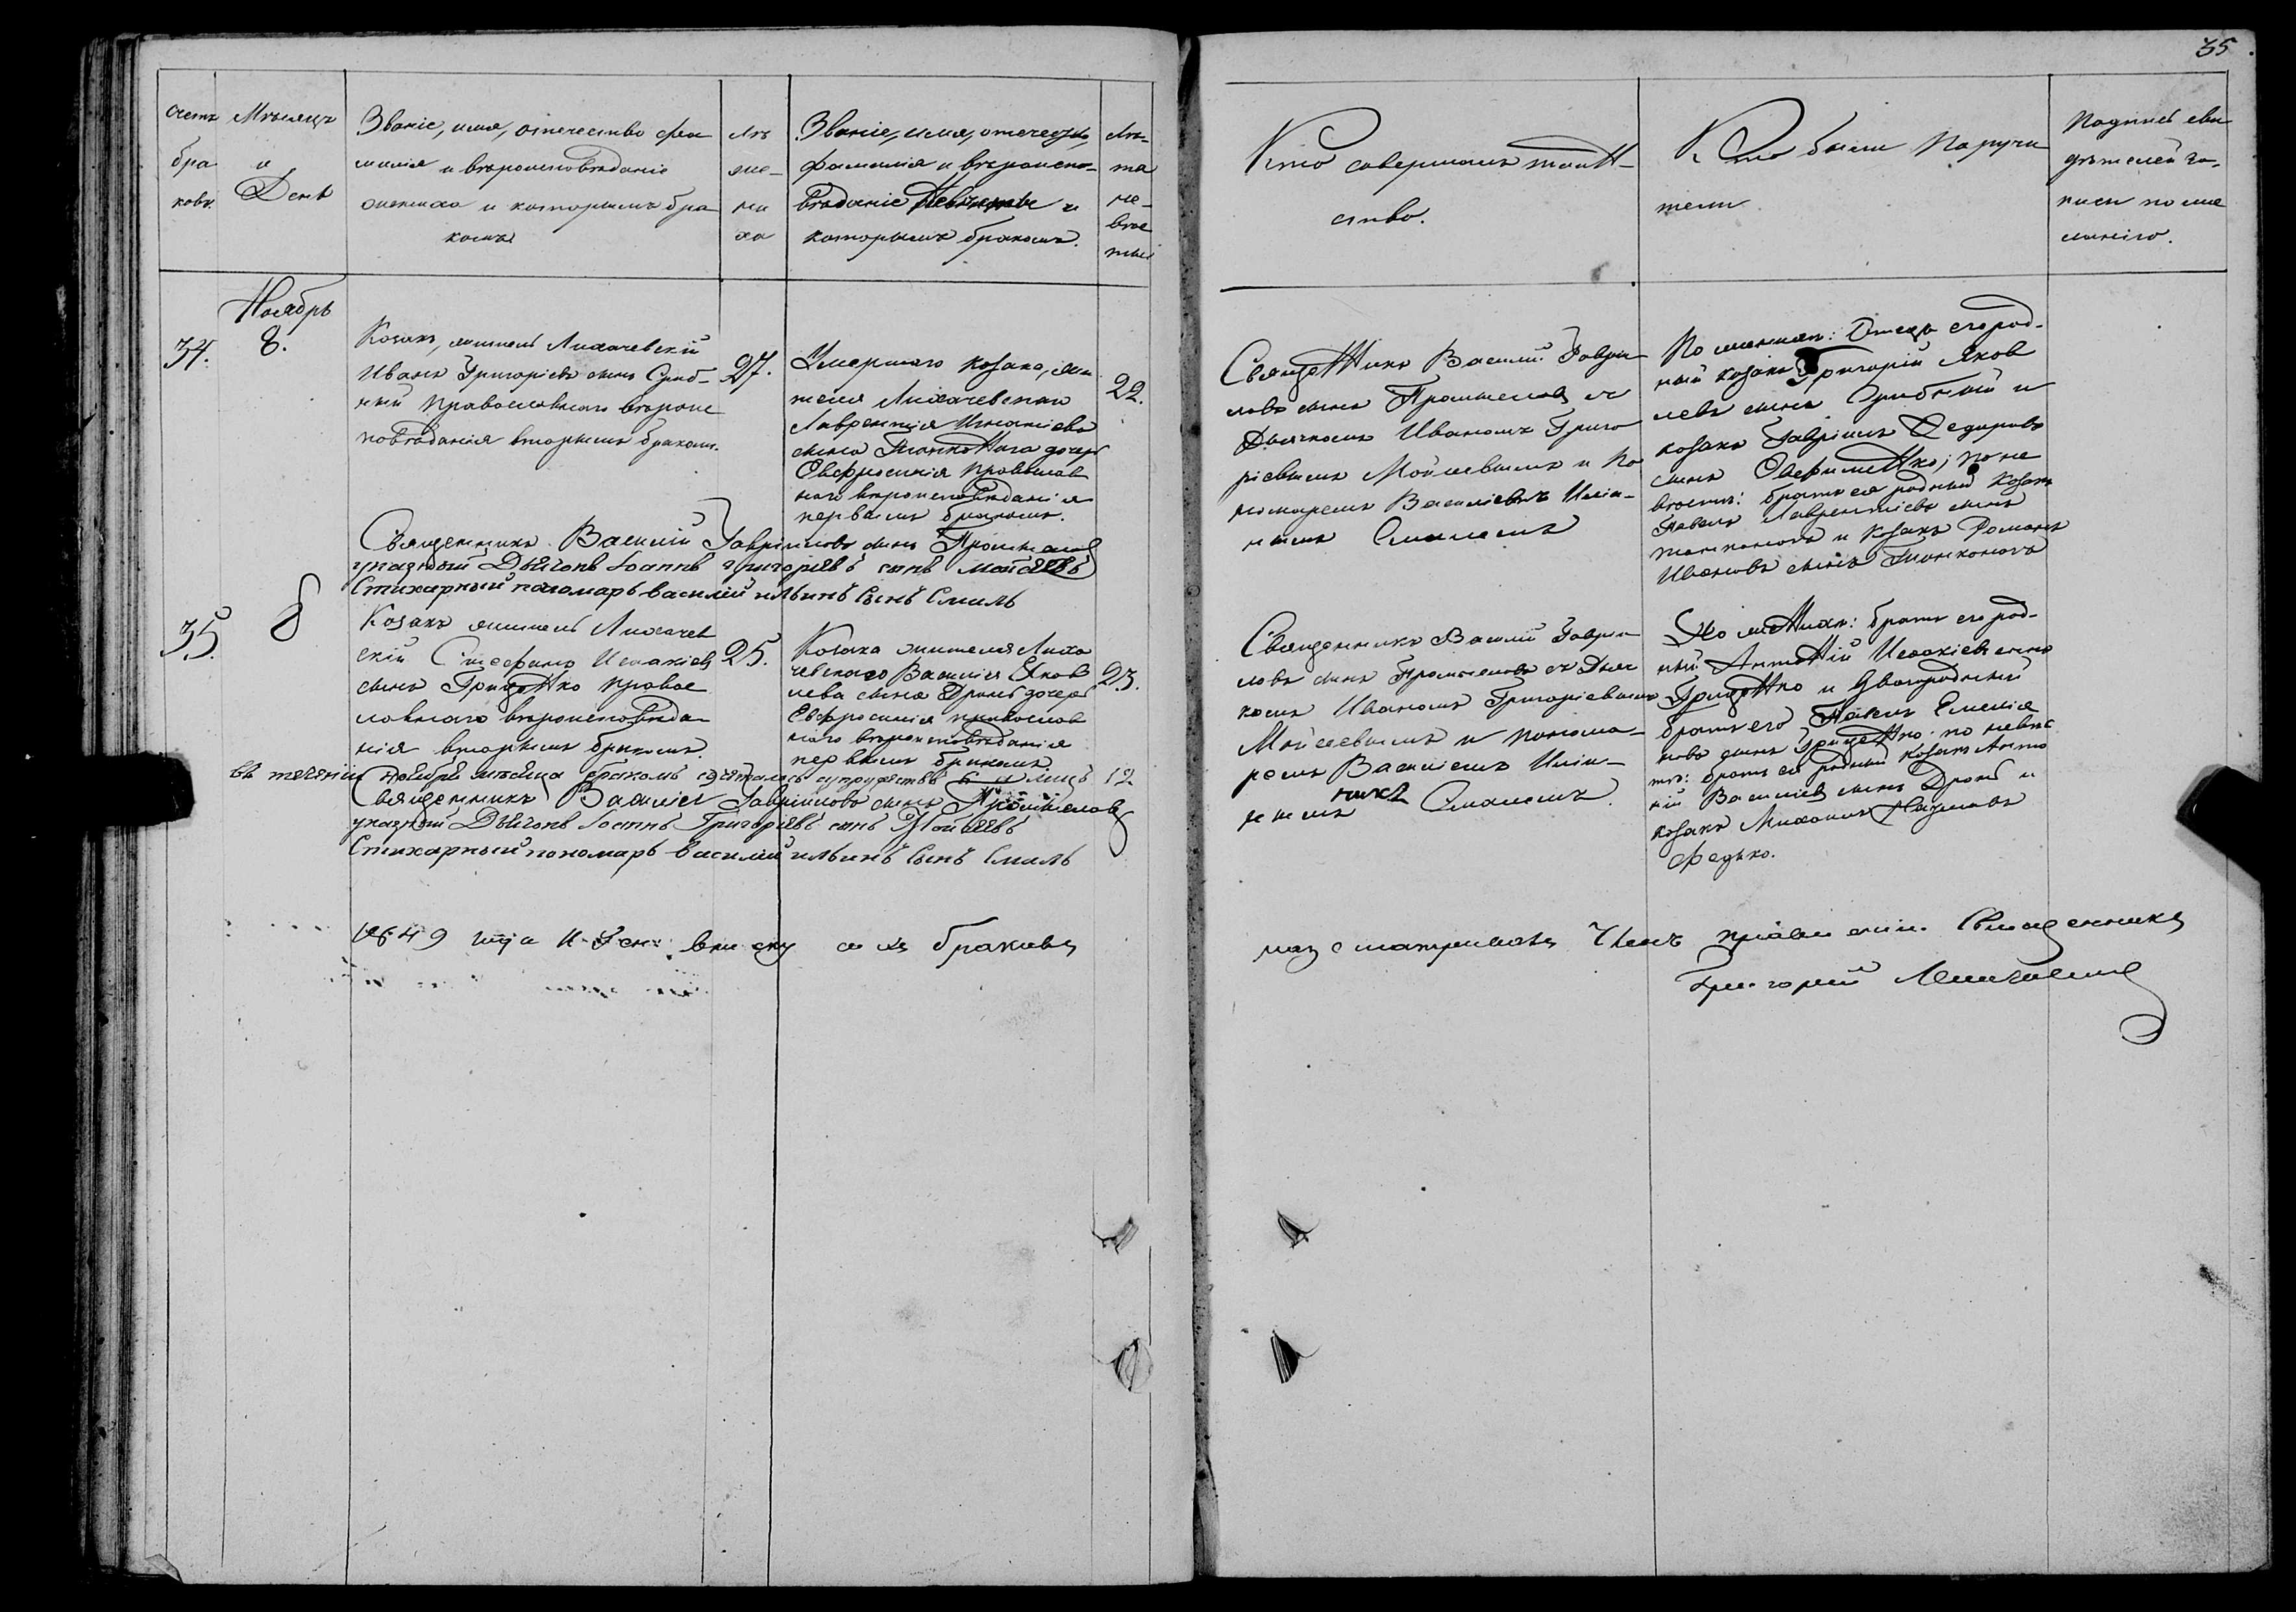 35.
Счетъ
бра
ковъ.
Мѣсяцъ
и
День
Званіе, имя, отечество фа
милія и вѣроисповѣданіе
жениха и которымъ бра
комъ
Лѣ
же-
ни
ха
Званіе, имя, отечество,
фамилія и вѣроиспо-
вѣданіе Невѣсты и
которымъ бракомъ.
Лѣ-
та
не-
вѣс
ты
Кто совершалъ таин-
ство.
Кто были Поручи
тели
Подписъ сви
дѣтелей за-
писи по же
ланію.
Ноябрь
34.
8.
Козакъ, житель Лихачевскій
Иванъ Григоріевъ сынъ Сриб-
ный православнаго вѣроис
повѣданія вторымъ бракомъ.
27.
Умершаго козака, жи
теля Лихачевскаго
Лаврентія Игнатіева
сына Тонконога дочерь
Евфросинія православ
наго вѣроисповѣданія
первымъ бракомъ.
22.
Священникъ Василій Гаври
ловъ сынъ съ
Дьячкомъ Иваномъ Григо
ріевымъ Мойсеевымъ и По
номаремъ Василіемъ Ильи-
нымъ Смалемъ
По женихѣ: Отецъ его род-
ный козакъ Григорій Яков
левъ сынъ Срибный и
козакъ Гавріилъ Федоровъ
сынъ; по не
вѣстѣ: братъ ея родный козакъ
Павелъ Лаврентіевъ сынъ
Тонконогъ и Козакъ Романъ
Ивановъ сынъ Тонконогъ
Священникъ Василій Гавріиловъ сынъ
указный Дьячокъ Іоаннъ Григоріевъ сынъ Мойсеевъ
Стихарный пономарь василій ильинъ Сынъ Смаль
35.
8
Козакъ житель Лихачев
скій Стефанъ Исакіевъ
сынъ Гриценко правос
лавнаго вѣроисповѣда
нія вторымъ бракомъ.
25.
Козака жителя Лиха
чевскаго Василія Яков
лева сына Дроня дочерь
Евфросинія православ
наго вѣроисповѣданія
первымъ бракомъ.
23.
Священникъ Василій Гаври
ловъ сынъ съ Дьяч
комъ Иваномъ Григоріевымъ
Мойсеевымъ и понома-
ремъ Василіемъ Ильи-
нымъ Смалемъ.
По женихѣ: братъ его род-
ный Антоній Исакіевъ сынъ
Гриценко и двоюродный
братъ его Павелъ
сынъ Гриценко по невѣс
тѣ: братъ ея родный Козакъ Анто
ній Василіевъ сынъ Дронь и
козакъ Михаилъ Наумовъ
Федько.
въ теченіи ноября мѣсяца бракомъ сочеталось супружествъ 6 и лицъ 12.
Священникъ Василій Гавріиловъ сынъ
указный Дьячокъ Іоаннъ Григорьевъ сынъ Мойсеевъ
Стихарный пономарь василий ильинъ Сынъ Смаль
1849 года браковъ
Священникъ
Григорій